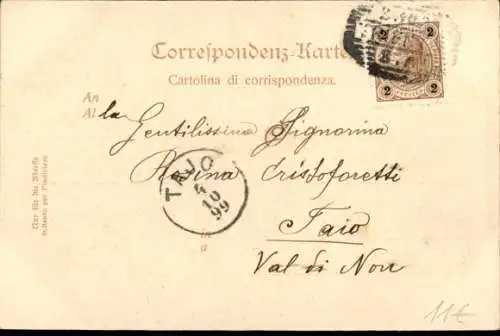 Correspondenz-Karte
Cartolina di corrispondenza.
2 2
2 2
An
Al la Gentilissima Signorina
Cristoforetti
TAJO
4
10
99
Taio
in
a
Val di Non
Nur für die Adresse
11€